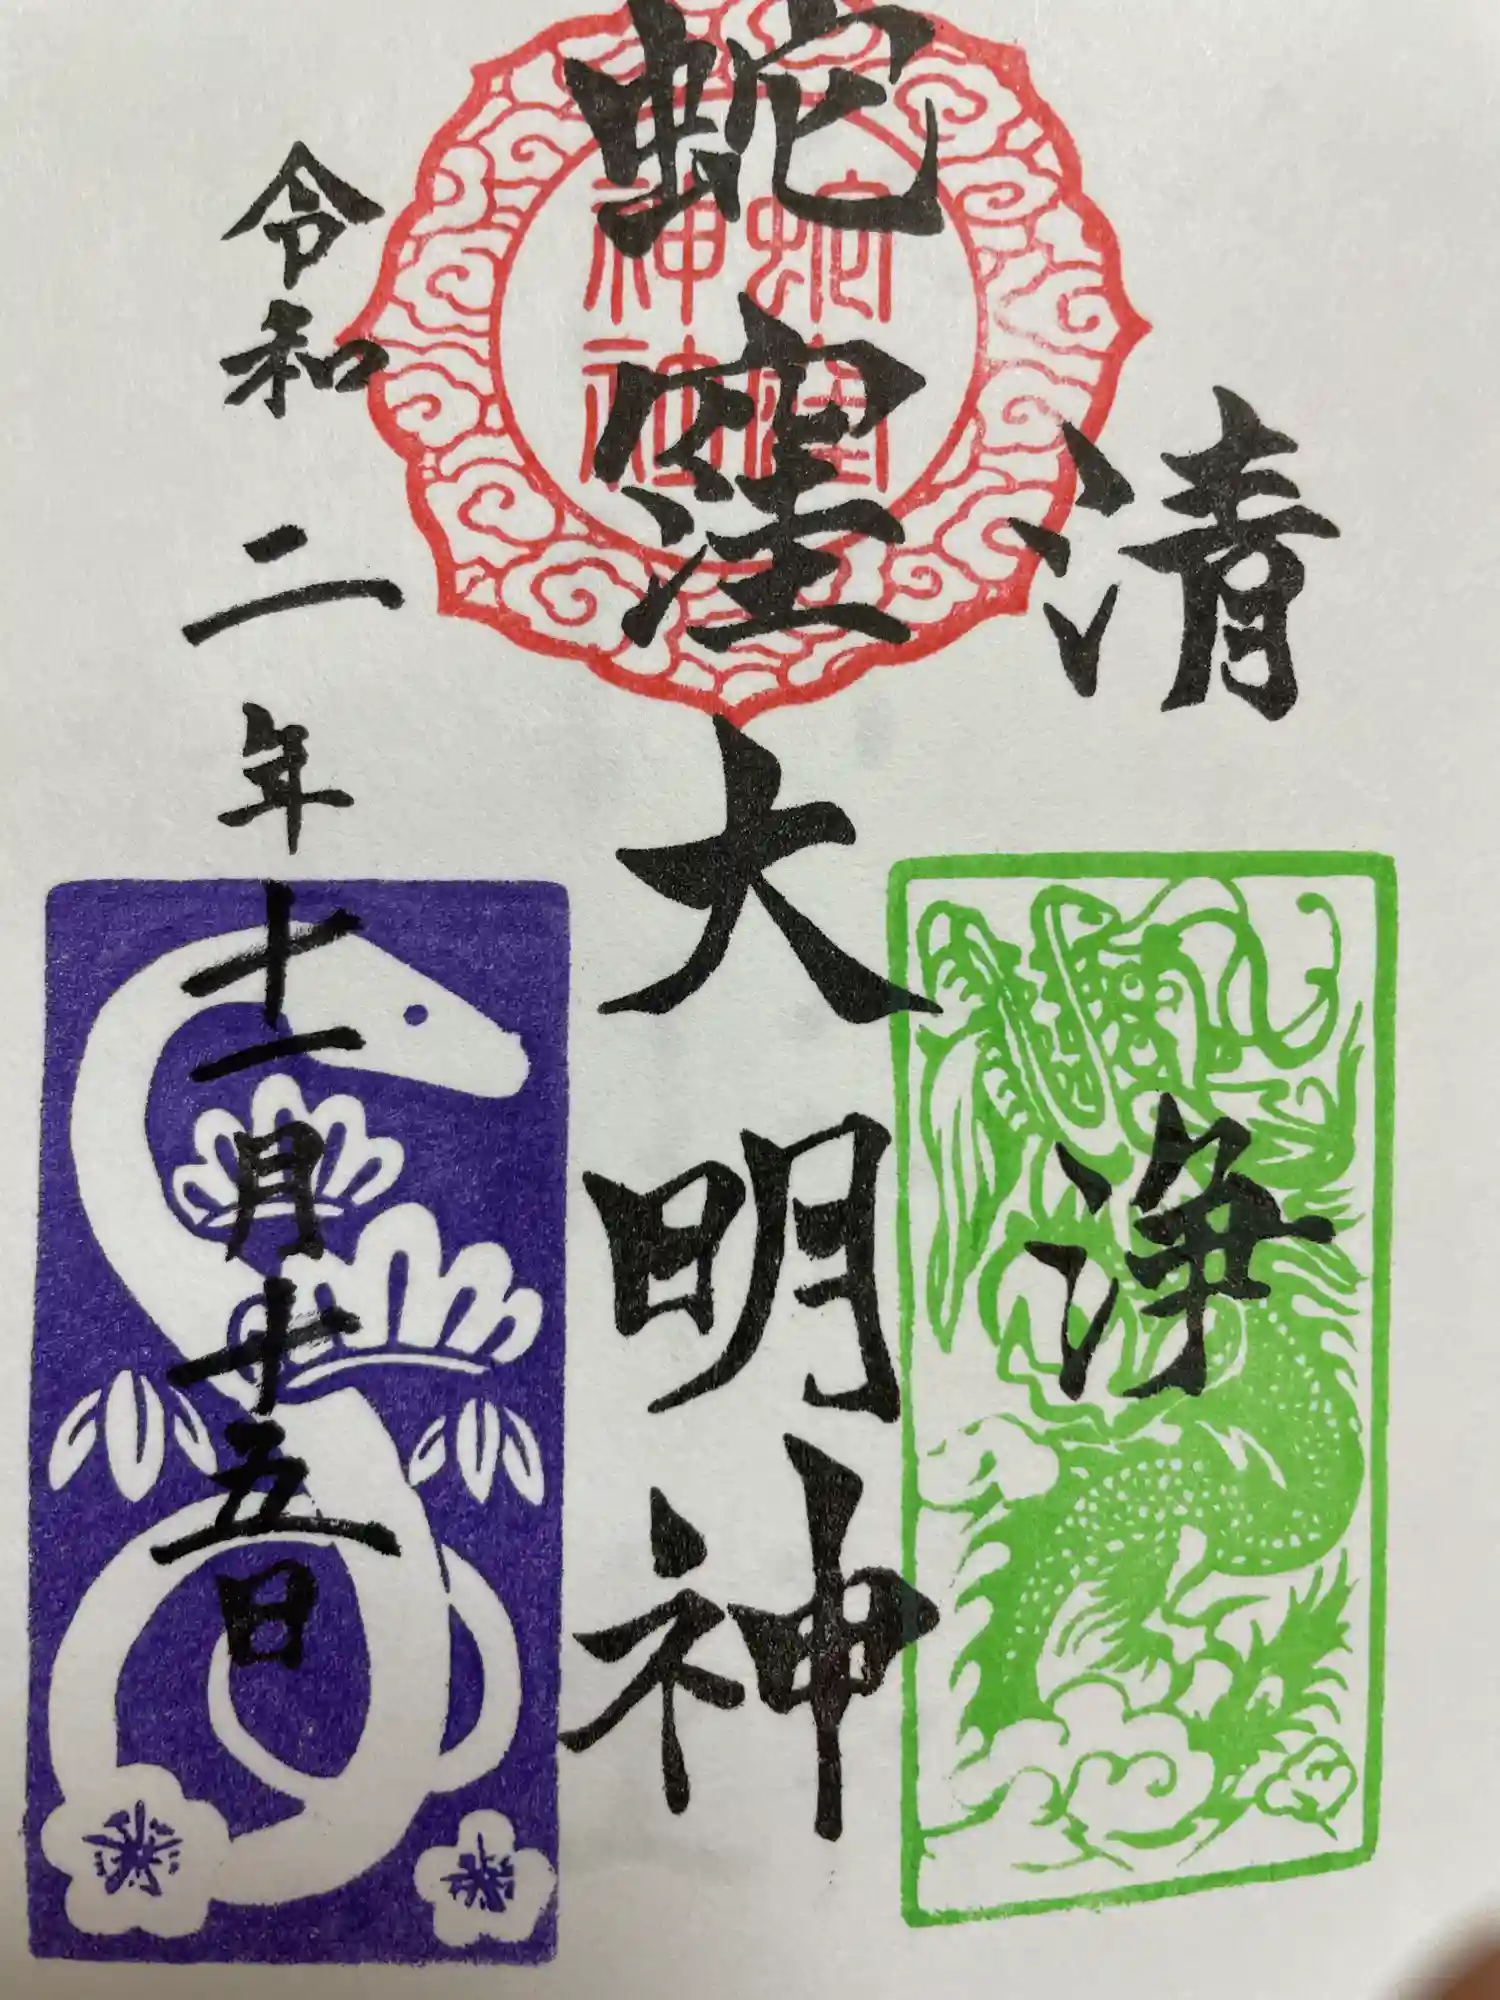 清浄
蛇窪大明神
蛇窪
神社
令和二年十一月十五日